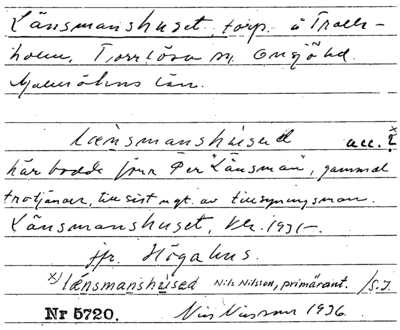 Länsmanshuset, torp. å Trolle-
holm, Torrlösa sn, Onsjö hd.
Malmöhus län.
lænsmanshùsed acc. 2 x
här bodde förr Per "Länsman", gammal
trotjänare, till sist ngt. av tillsyningsman.
Länsmanshuset, Kbr. 1931-.
jfr. Högahus.
x) lǽnsmanshùsed Nils Nilsson, primärant. /S.I.
Nr 5720. Nils Nilsson 1936.